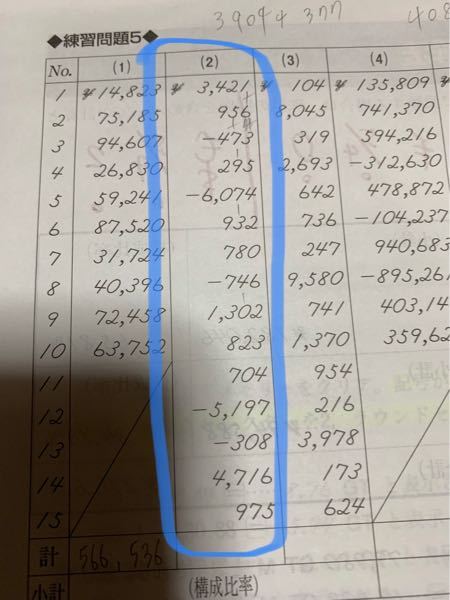 39044 377 408
◆練習問題5◆
No. (1) (2) (3) (4)
1 ¥14,823 ¥ 3,421 ¥ 104 ¥ 135,809
2 75,185 956 8,045 741,370
3 94,607 -473 319 594,216
4 26,830 295 2,693 -312,630
5 59,241 -6,074 642 478,872
6 87,520 932 736 -104,237
7 31,724 780 247 940,683
8 40,396 -746 9,580 -895,261
9 72,458 1,302 741 403,14
10 63,752 823 1,370 359,62
11 704 954
12 -5,197 216
13 -308 3,978
14 4,716 173
15 975 624
計 566,536
小計 (構成比率)